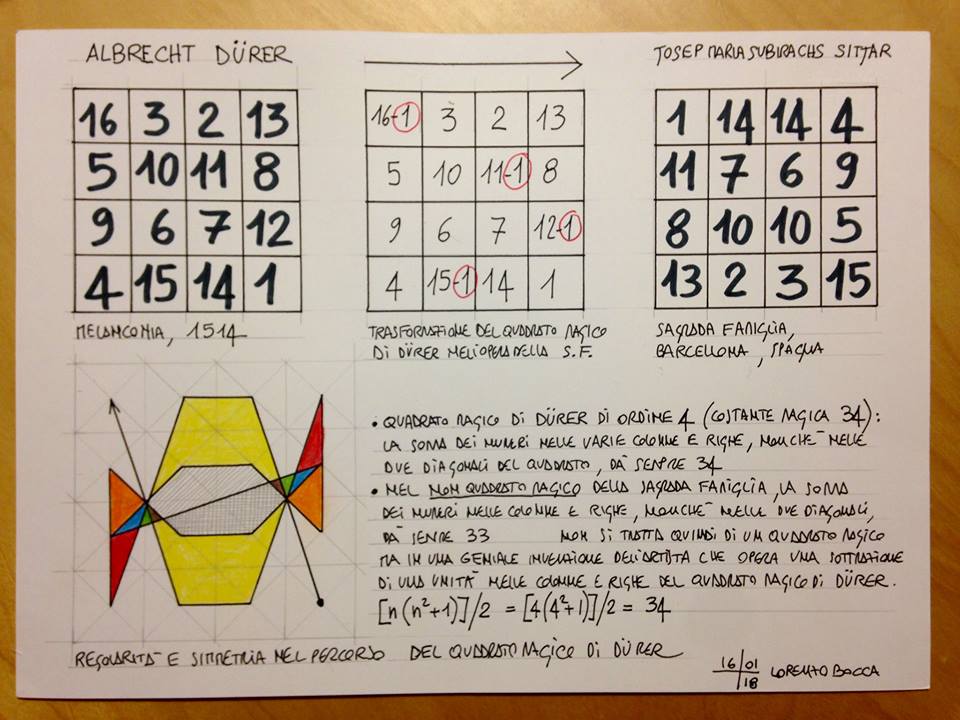 ALBRECHT DÜRER
16 3 2 13
5 10 11 8
9 6 7 12
4 15 14 1
MELANCONIA, 1514
16-1 3 2 13
5 10 11-1 8
9 6 7 12-1
4 15-1 14 1
TRASFORMAZIONE DEL QUADRATO MAGICO
DI DÜRER NELL'OPERA DELLA S.F.
JOSEP MARIA SUBIRACHS SITJAR
1 14 14 4
11 7 6 9
8 10 10 5
13 2 3 15
SAGRADA FAMIGLIA,
BARCELLONA, SPAGNA
• QUADRATO MAGICO DI DÜRER DI ORDINE 4 (COSTANTE MAGICA 34):
LA SOMMA DEI NUMERI NELLE VARIE COLONNE E RIGHE, NONCHÉ NELLE
DUE DIAGONALI DEL QUADRATO, DÀ SEMPRE 34
• NEL NON QUADRATO MAGICO DELLA SAGRADA FAMIGLIA, LA SOMMA
DEI NUMERI NELLE COLONNE E RIGHE, NONCHÉ NELLE DUE DIAGONALI,
DÀ SEMPRE 33 NON SI TRATTA QUINDI DI UN QUADRATO MAGICO
MA IN UNA GENIALE INVENZIONE DELL'ARTISTA CHE OPERA UNA SOTTRAZIONE
DI UNA UNITÀ NELLE COLONNE E RIGHE DEL QUADRATO MAGICO DI DÜRER.
[n(n²+1)]/2 = [4(4²+1)]/2 = 34
REGOLARITÀ E SIMMETRIA NEL PERCORSO DEL QUADRATO MAGICO DI DÜRER
16/01/18 LORENZO BOCCA